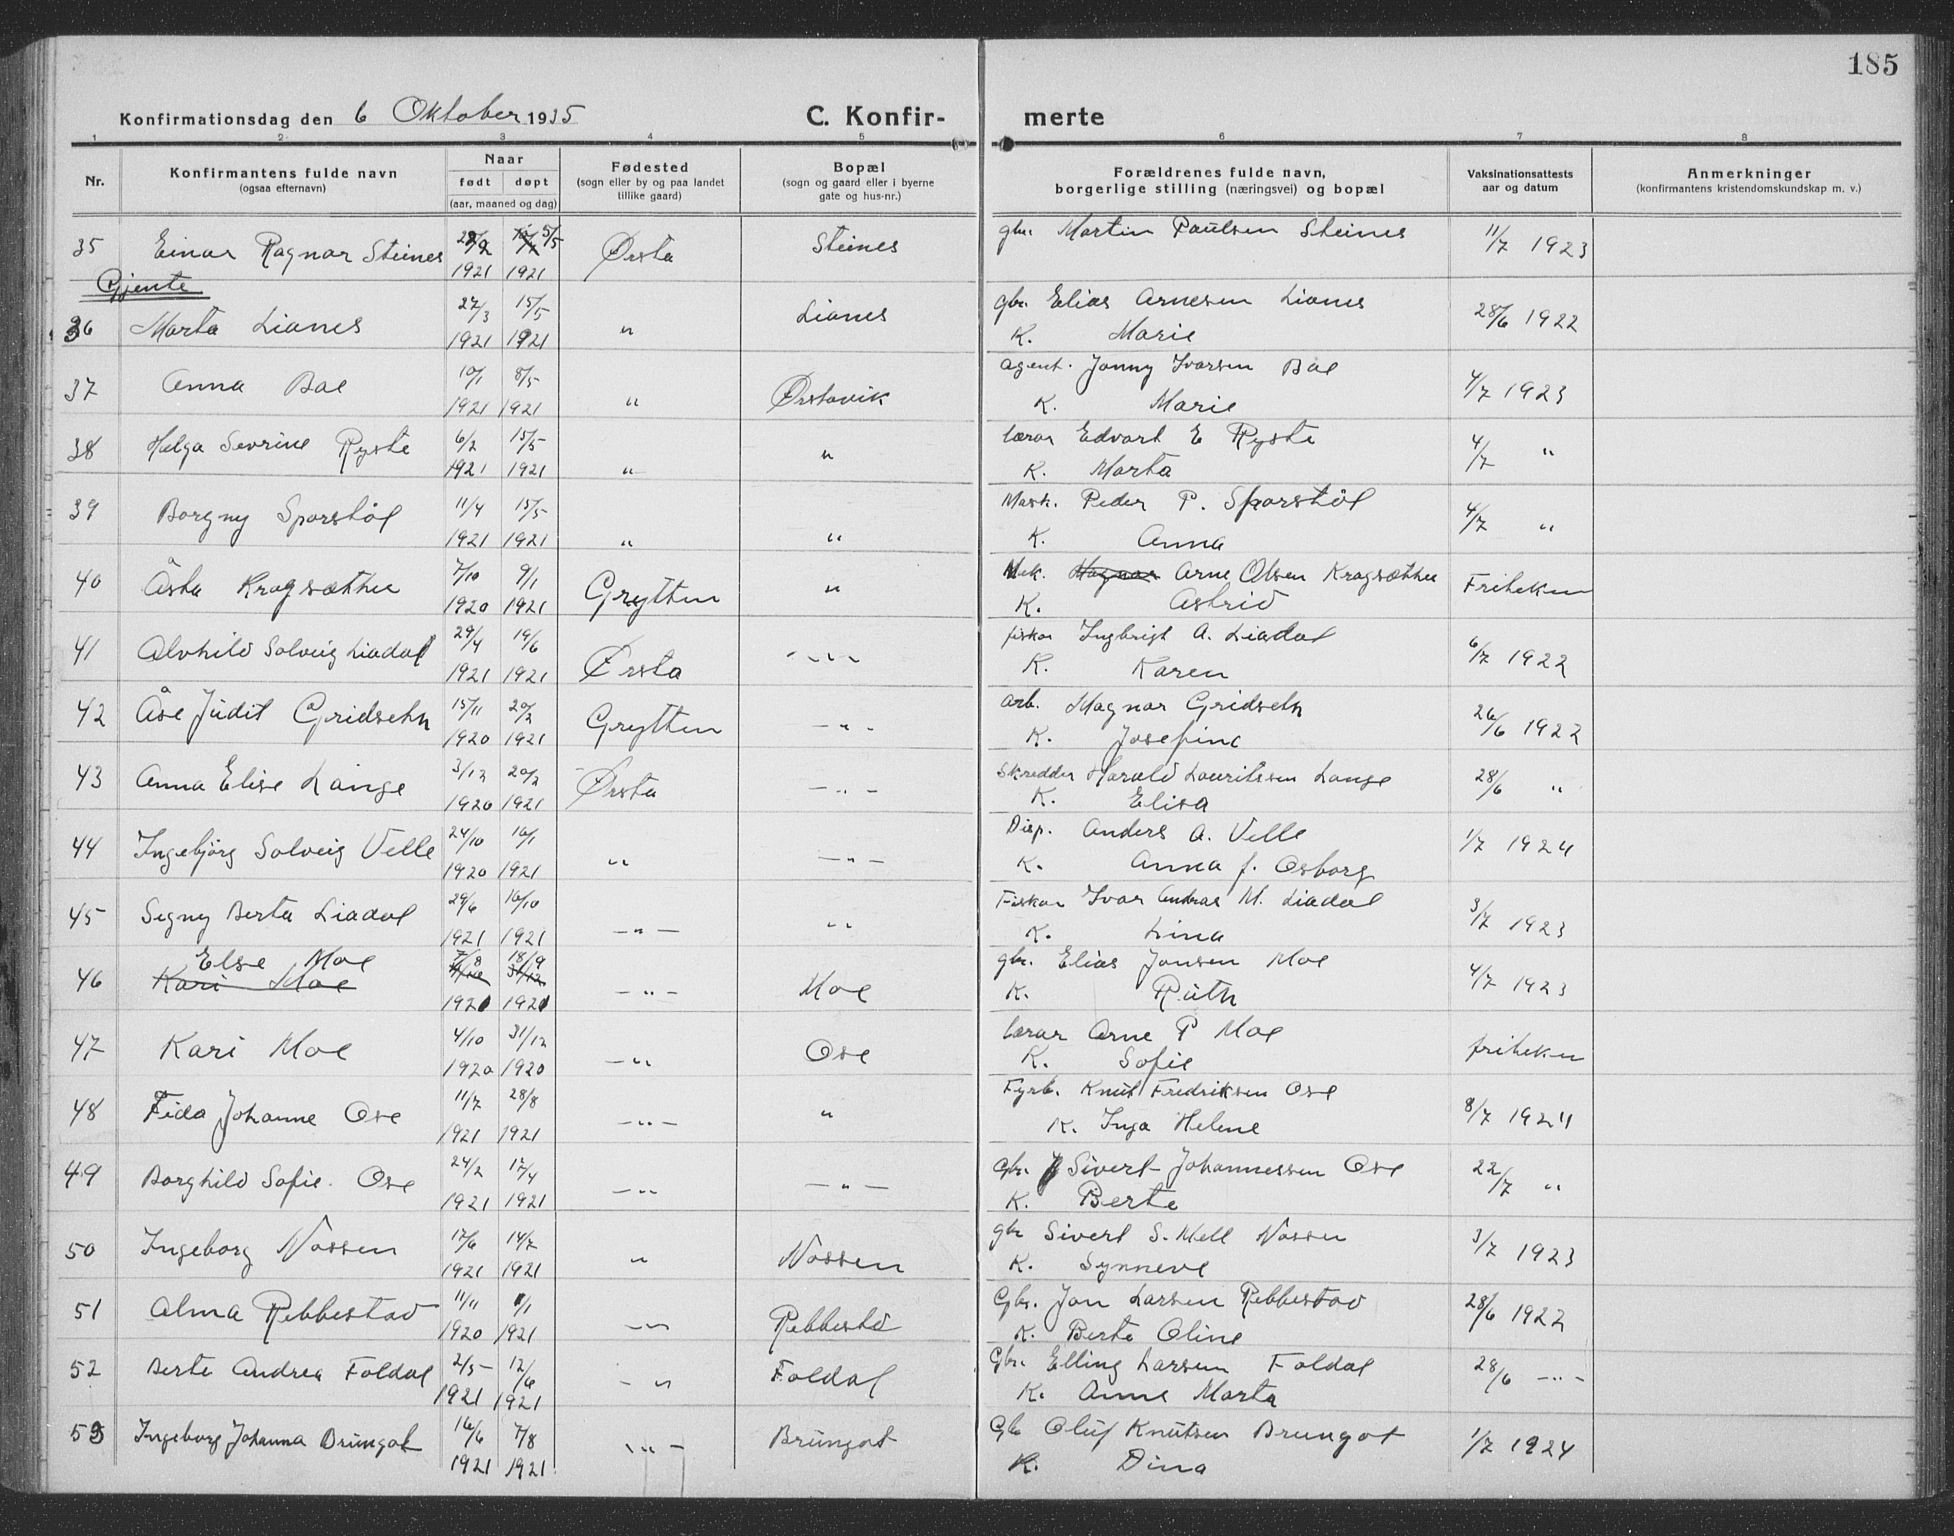 185
Konfirmationsdag den 6 Oktober 1935 C. Konfir- merte
1 2 3 4 5 6 7 8
Nr. Konfirmantens fulde navn (ogsaa efternavn) Naar født døpt (aar, maaned og dag) Fødested (sogn eller by og paa landet tillike gaard) Bopæl (sogn og gaard eller i byerne gate og hus-nr.) Forældrenes fulde navn, borgerlige stilling (næringsvei) og bopæl Vaksinationsattests aar og datum Anmerkninger (konfirmantens kristendomskundskap m. v.)
35 Einar Ragnar Steines 1921 5/5 1921 Ørsta Steines gbr. Martin Paulsen Steines 11/7 1923
Gjente
36 Marta Lianes 27/3 1921 15/5 1921 " Lianes gbr. Elias Arnesen Lianes 28/6 1922
K. Marie
37 Anna Boe 10/1 1921 8/5 1921 " Ørstavik agent. Jonny Ivarsen Boe 4/7 1923
K. Marie
38 Helga Sevrine Ryste 6/2 1921 15/5 1921 " " lærar Edvart E Ryste 4/7 "
K. Marta
39 Borgny Sporstøl 11/4 1921 15/5 1921 " " Mask. Peder P. Sporstøl 4/7 "
K. Anna
40 Åsta Kragsæther 7/10 1920 9/1 1921 Grytten " Mek. Magnar Arne Olsen Kragsæther Friteken
K. Astrid
41 Alvhild Solveig Liadal 29/4 1921 19/6 1921 Ørsta - " - fiskar Ingbrigt A. Liadal 6/7 1922
K. Karen
42 Åse Judit Gridseth 15/11 1920 20/2 1921 Grytten - " - arb. Magnar Gridseth 26/6 1922
K. Josefine
43 Anna Elise Lange 3/12 1920 20/2 1921 Ørsta - " - Skredder Harald Lauritssen Lange 28/6 "
K. Elisa
44 Ingebjørg Solveig Velle 24/10 1920 16/1 1921 " - " - Disp. Anders A. Velle 1/7 1924
K. Anna f. Osborg
45 Segny Berta Liadal 29/6 1921 16/10 1921 - " - " Fiskar Ivar Andras M. Liadal 3/7 1923
K. Lina
46 Else Moe 7/8 18/9
Kari Moe 1921 1921 - " - Moe gbr. Elias Jonsen Moe 4/7 1923
K. Ruth
47 Kari Moe 4/10 1920 31/12 1920 - " Ose lærar Arne P Moe friteken
K. Sofie
48 Fida Johanne Ose 11/7 1921 28/8 1921 - " - " Fyrb. Knut Fredriksen Ose 8/7 1924
K. Inga Helene
49 Borghild Sofie. Ose 24/2 1921 17/4 1921 - " - " - Gbr. Sivert Johannessen Ose 22/7 "
K. Berte
50 Ingeborg Nossen 17/6 1921 14/7 1921 " Nossen gbr Sivert S. Mell Nossen 3/7 1923
K. Synneve
51 Alma Rebbestad 11/11 1920 1/1 1921 - " Rebbestd Gbr. Jon Larsen Rebbestad 28/6 1922
K. Berte Oline
52 Berte Andrea Foldal 2/5 - 1921 12/6 1921 - " Foldal Gbr. Elling Larsen Foldal 28/6 - " -
K. Anne Marta
53 Ingeborg Johanna Brungot 16/6 1921 7/8 1921 - " - Brungot Gbr Oluf Knutsen Brungot 1/7 1924
K. Dina